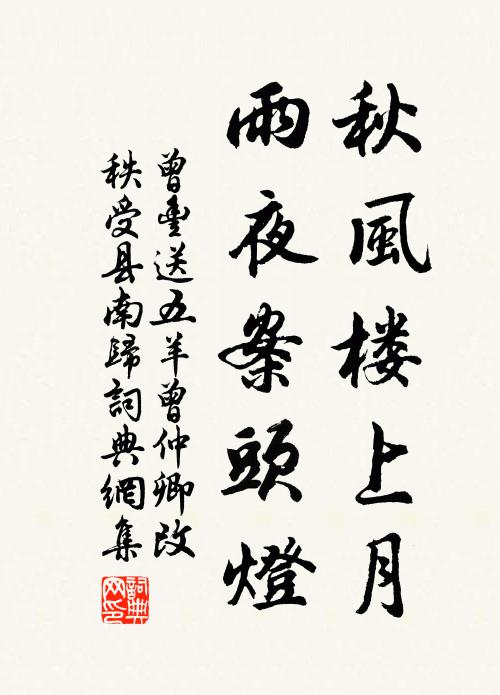 秋風楼上月
雨夜案頭燈
曾豊送五羊曾仲卿改
秩受县南歸詞典網集
詞典
网印